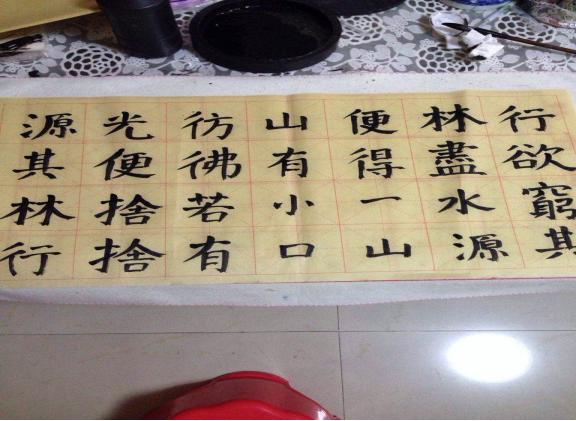 行欲窮其
林盡水源
便得一山
山有小口
彷彿若有
光便捨捨
源其林行